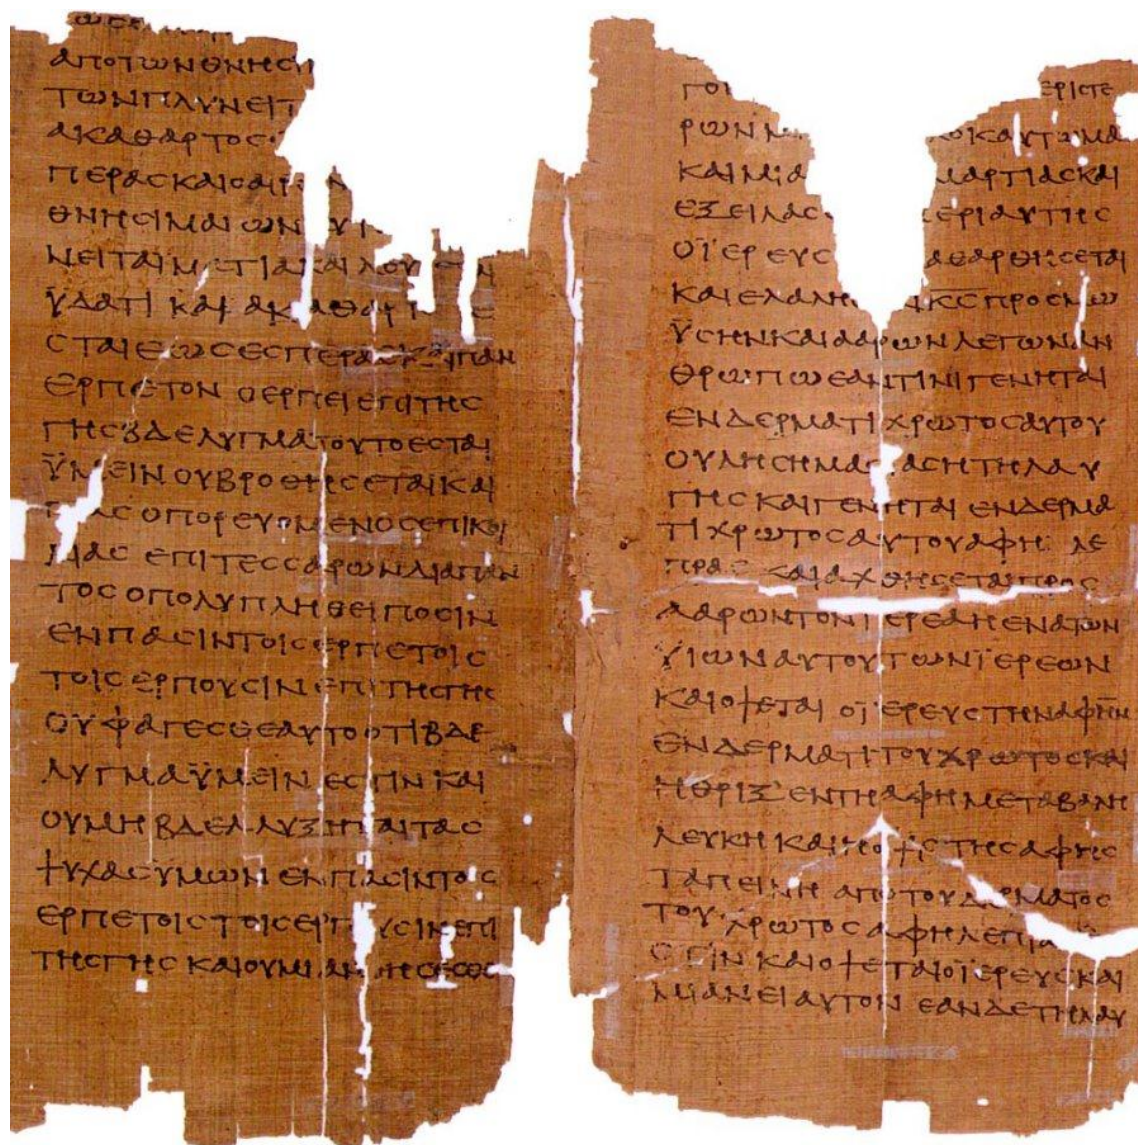 ΑΠΟΤΩΝΘΝΗCΙ
ΤΩΝΠΛΥΝΕΙΤ
ΑΚΑΘΑΡΤΟC
ΠΕΡΑCΚΑΙ
ΘΝΗCΙΜΑΙΩΝ
ΝΕΙΤΑΪΜΑΤΙΑΚΑΙΛΟΥ
ΫΔΑΤΙ ΚΑΙ ΑΚΑΘΑΡΤΟCΕ
CΤΑΙΕΩCΕCΠΕΡΑCΚΑΙΠΑΝ
ΕΡΠΕΤΟΝ ΟΕΡΠΕΙΕΠΙΤΗC
ΓΗCΒΔΕΛΥΓΜΑΤΟΥΤΟΕCΤΑΙ
ΫΜΕΙΝ ΟΥΒΡΟΘΗCΕΤΑΙΚΑΙ
ΠΑC ΟΠΟΡΕΥΟΜΕΝΟCΕΠΙΚΟΙ
ΛΙΑC ΕΠΙΤΕCCΑΡΩΝΔΙΑΠΑΝ
ΤΟC ΟΠΟΛΥΠΛΗΘΕΙΠΟCΙΝ
ΕΝΠΑCΙΝΤΟΙCΕΡΠΕΤΟΙC
ΤΟΙCΕΡΠΟΥCΙΝ ΕΠΙΤΗCΓΗC
ΟΥΦΑΓΕCΘΕΑΥΤΟΟΤΙΒΔΕ
ΛΥΓΜΑΫΜΕΙΝ ΕCΤΙΝ ΚΑΙ
ΟΥΜΗ ΒΔΕΛΛΥΞΗΤΑΙΤΑC
ΨΥΧΑCΥΜΩΝ ΕΝΠΑCΙΝΤΟΙC
ΕΡΠΕΤΟΙC ΤΟΙCΕΡΠΟΥCΙΝΕΠΙ
ΤΗCΓΗC ΚΑΙΟΥΜΙΑΝΘΗCΕCΘΕ
ΓΟ ΕΡΙCΤΕ
ΡΩΝ ΚΑΥΤΩΜΑ
ΚΑΙΜΙΑ ΜΑΡΤΙΑCΚΑΙ
ΕΞΕΙΛΑC ΠΕΡΙΑΥΤΗC
ΟΪΕΡΕΥC ΑΘΑΡΘΗCΕΤΑΙ
ΚΑΙΕΛΑΛΗ ΚC ΠΡΟCΜΩ
ΫCΗΝΚΑΙΑΑΡΩΝΛΕΓΩΝΑΝ
ΘΡΩΠΩΕΑΝΤΙΝΙΓΕΝΗΤΑΙ
ΕΝΔΕΡΜΑΤΙΧΡΩΤΟCΑΥΤΟΥ
ΟΥΛΗCΗΜΑCΙΑCΗΤΗΛΑΥ
ΓΗC ΚΑΙΓΕΝΗΤΑΙ ΕΝΔΕΡΜΑ
ΤΙΧΡΩΤΟCΑΥΤΟΥΑΦΗ ΛΕ
ΠΡΑC ΚΑΙΑΧΘΗCΕΤΑΙΠΡΟC
ΑΑΡΩΝΤΟΝΪΕΡΕΑΗΕΝΑΤΩΝ
ΫΙΩΝΑΥΤΟΥΤΩΝΪΕΡΕΩΝ
ΚΑΙΟΨΕΤΑΙ ΟΪΕΡΕΥCΤΗΝΑΦΗΝ
ΕΝΔΕΡΜΑΤΙΤΟΥΧΡΩΤΟCΚΑΙ
ΗΘΡΙΞ ΕΝΤΗΑΦΗΜΕΤΑΒΑΛΗ
ΛΕΥΚΗ ΚΑΙΗΟΨΙCΤΗCΑΦΗC
ΤΑΠΕΙΝΗ ΑΠΟΤΟΥΔΕΡΜΑΤΟC
ΤΟΥ ΧΡΩΤΟC ΑΦΗΛΕΠΡΑ
ΕCΤΙΝ ΚΑΙΟΨΕΤΑΙΟΪΕΡΕΥCΚΑΙ
ΜΙΑΝΕΙΑΥΤΟΝ ΕΑΝΔΕΤΗΛΑΥ